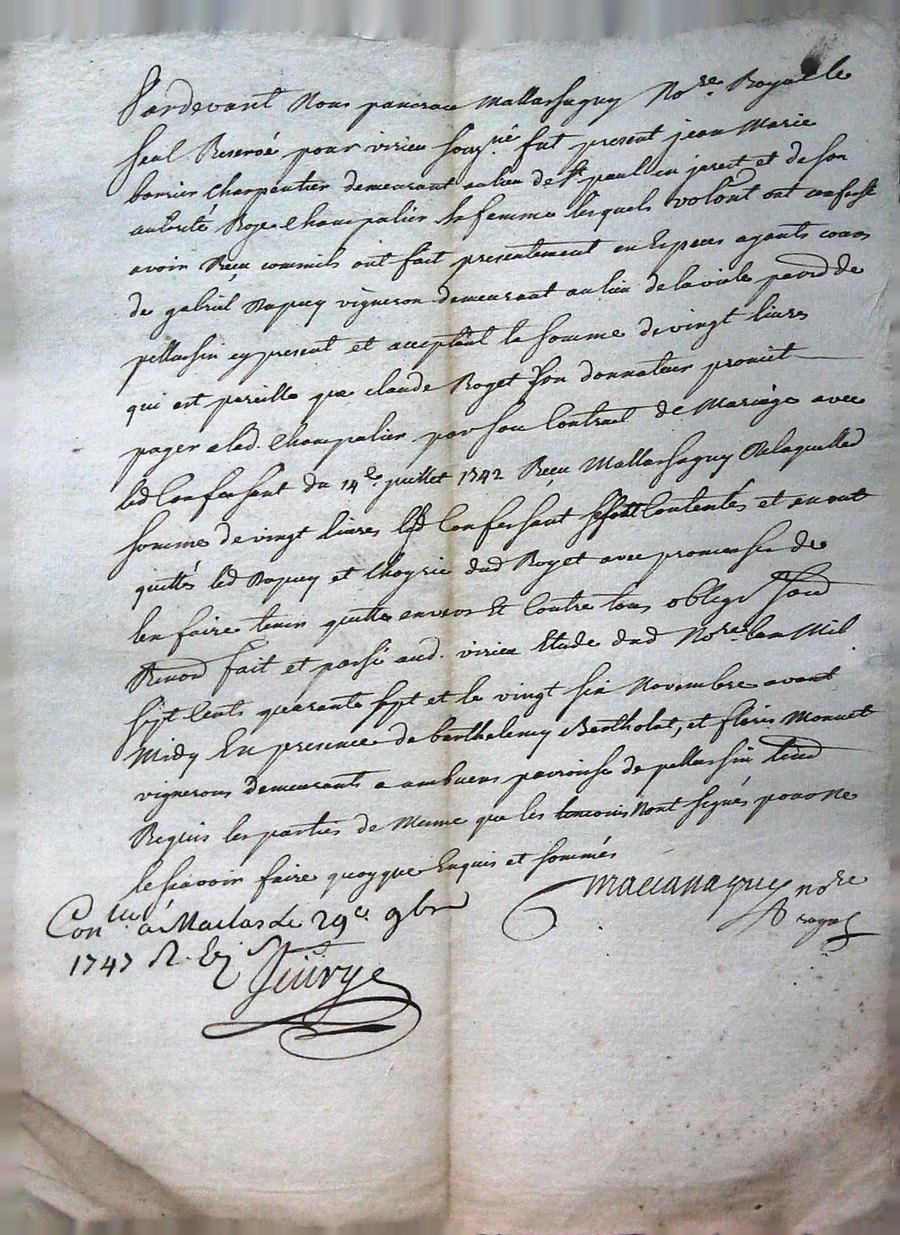 Pardevant Nous pancrace Mallassagny No.re Royal le
seul Reservé pour virieu soussig.né fut present jean Marie
barrier charpentier demeurant au lieu de S.t paul en jarest et de son
autorité Roze Champalier sa femme lesquels volont.d ont confessé
avoir Reçu comme ils ont fait presentement en Especes ayants cours
de gabriel Dupuy vigneron demeurant au lieu de la viale par.d de
pellussin cy present et acceptant la somme de vingt livres
qui est pareille que claude Boget son donnateur promit
payer a lad. Champalier par son Contrat de Mariage avec
led Confessant du 14.e juillet 1742 Reçu Mallassagny de laquelle d
somme de vingt livres les d Confessant se sont Contentés et en ont
quittés led Dupuy et l'hoyrie dud Boget avec promesses de
len faire tenir quitte envers Et Contre tous oblige soud
Renond fait et passé aud. virieu Etude dud No.re Lan Mil
sept Cents quarante sept et le vingt six Novembre avant
Midy En presence de barthelemy Bertholat, et fleris Monnet
vignerons demeurants a paroisse de pellussin
Requis les parties de Meme que les temoins N'ont signés pour Ne
le sçavoir faire quoyque Enquis et sommés
Mallassagny no.re
royal
Con.lle à Maclas Le 29.e 9bre
1747 R.